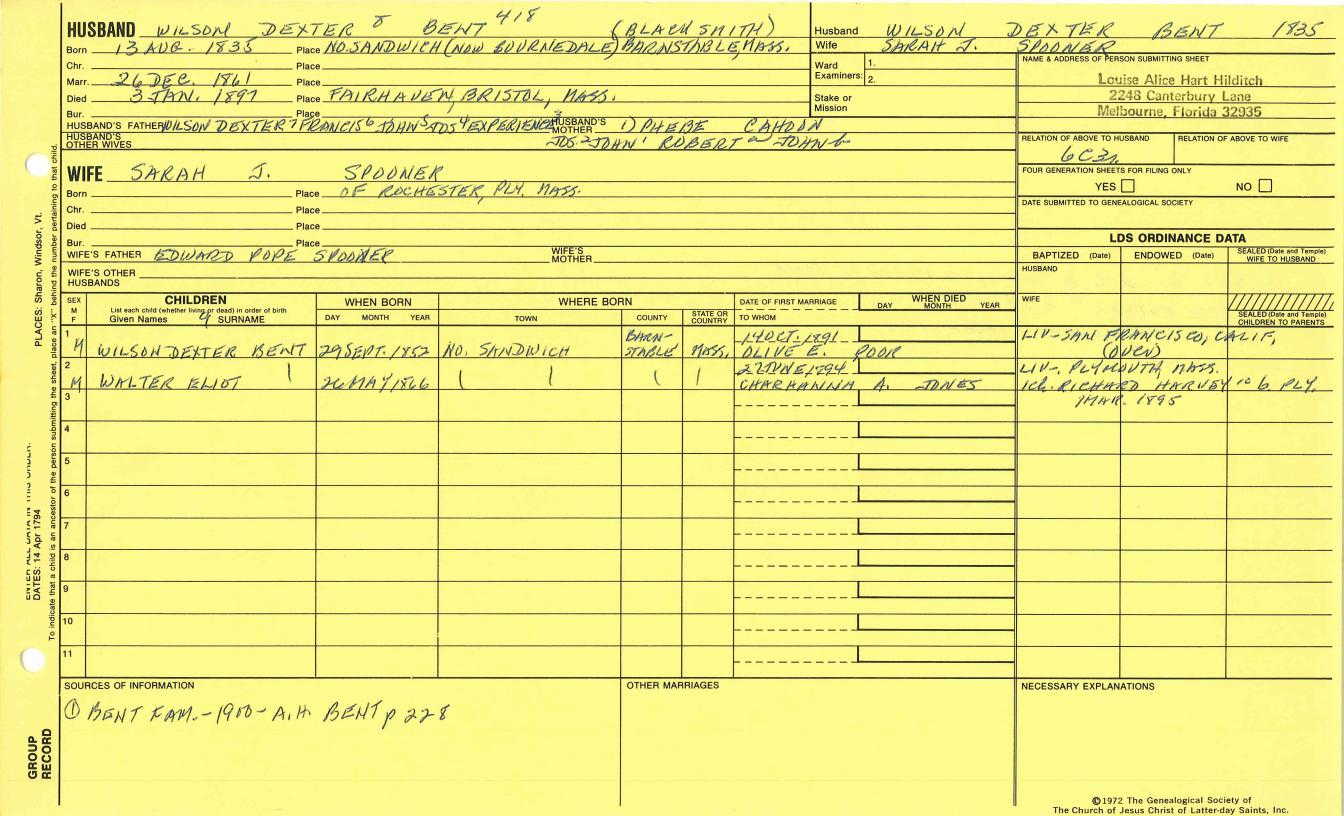 HUSBAND WILSON DEXTER 8 BENT 418 (BLACKSMITH)
Born 13 AUG. 1835 Place NO. SANDWICH (NOW BOURNEDALE) BARNSTABLE, MASS.
Chr. Place
Marr. 26 DEC. 1861 Place
Died 3 JAN. 1897 Place FAIRHAVEN, BRISTOL, MASS.
Bur. Place
HUSBAND'S FATHER WILSON DEXTER 7 FRANCIS 6 JOHN 5 JOS 4 EXPERIENCE 3 HUSBAND'S MOTHER 1) PHEBE CAHOON
HUSBAND'S OTHER WIVES JOS. 2 JOHN 1 ROBERT JOHN
Husband WILSON DEXTER BENT 1835
Wife SARAH J. SPOONER
Ward Examiners: 1.
2.
Stake or Mission
NAME & ADDRESS OF PERSON SUBMITTING SHEET
Louise Alice Hart Hilditch
2248 Canterbury Lane
Melbourne, Florida 32935
RELATION OF ABOVE TO HUSBAND RELATION OF ABOVE TO WIFE
6C3r
FOUR GENERATION SHEETS FOR FILING ONLY
YES NO
DATE SUBMITTED TO GENEALOGICAL SOCIETY
WIFE SARAH J. SPOONER
Born Place OF ROCHESTER, PLY. MASS.
Chr. Place
Died Place
Bur. Place
WIFE'S FATHER EDWARD POPE SPOONER WIFE'S MOTHER
WIFE'S OTHER HUSBANDS
LDS ORDINANCE DATA
BAPTIZED (Date) ENDOWED (Date) SEALED (Date and Temple) WIFE TO HUSBAND
HUSBAND
WIFE
SEALED (Date and Temple) CHILDREN TO PARENTS
SEX M F
CHILDREN
List each child (whether living or dead) in order of birth
Given Names 9 SURNAME
WHEN BORN
DAY MONTH YEAR
WHERE BORN
TOWN COUNTY STATE OR COUNTRY
DATE OF FIRST MARRIAGE
TO WHOM
WHEN DIED
DAY MONTH YEAR
1 M WILSON DEXTER BENT 29 SEPT. 1852 NO. SANDWICH BARNSTABLE MASS. 14 OCT. 1891 OLIVE E. POOR LIV-SAN FRANCISCO, CALIF,
2 M WALTER ELIOT 26 MAY 1866 27 JUNE 1894 CHARHANNA A. JONES LIV-, PLYMOUTH, MASS.
1 ch. RICHARD HARVEY 10 b. PLY.
1 MAR. 1895
3
4
5
6
7
8
9
10
11
SOURCES OF INFORMATION
① BENT FAM.-1900- A.H. BENT p 228
OTHER MARRIAGES
NECESSARY EXPLANATIONS
©1972 The Genealogical Society of
The Church of Jesus Christ of Latter-day Saints, Inc.
PLACES: Sharon, Windsor, Vt.
To indicate that a child is an ancestor of the person submitting the sheet, place an "X" behind the number pertaining to that child.
ENTER ALL DATA IN THIS ORDER:
DATES: 14 Apr 1794
GROUP RECORD